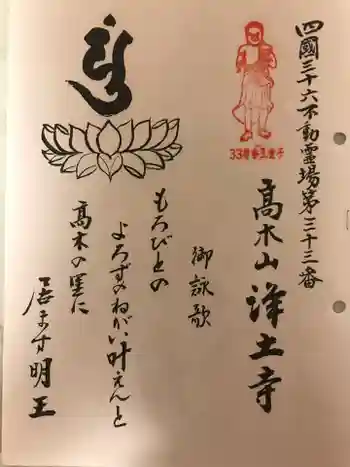 四國三十六不動霊場第三十三番
33番
髙木山 浄土寺
御詠歌
もろびとの
よろずのねがい叶えんと
髙木の里に
居ます明王